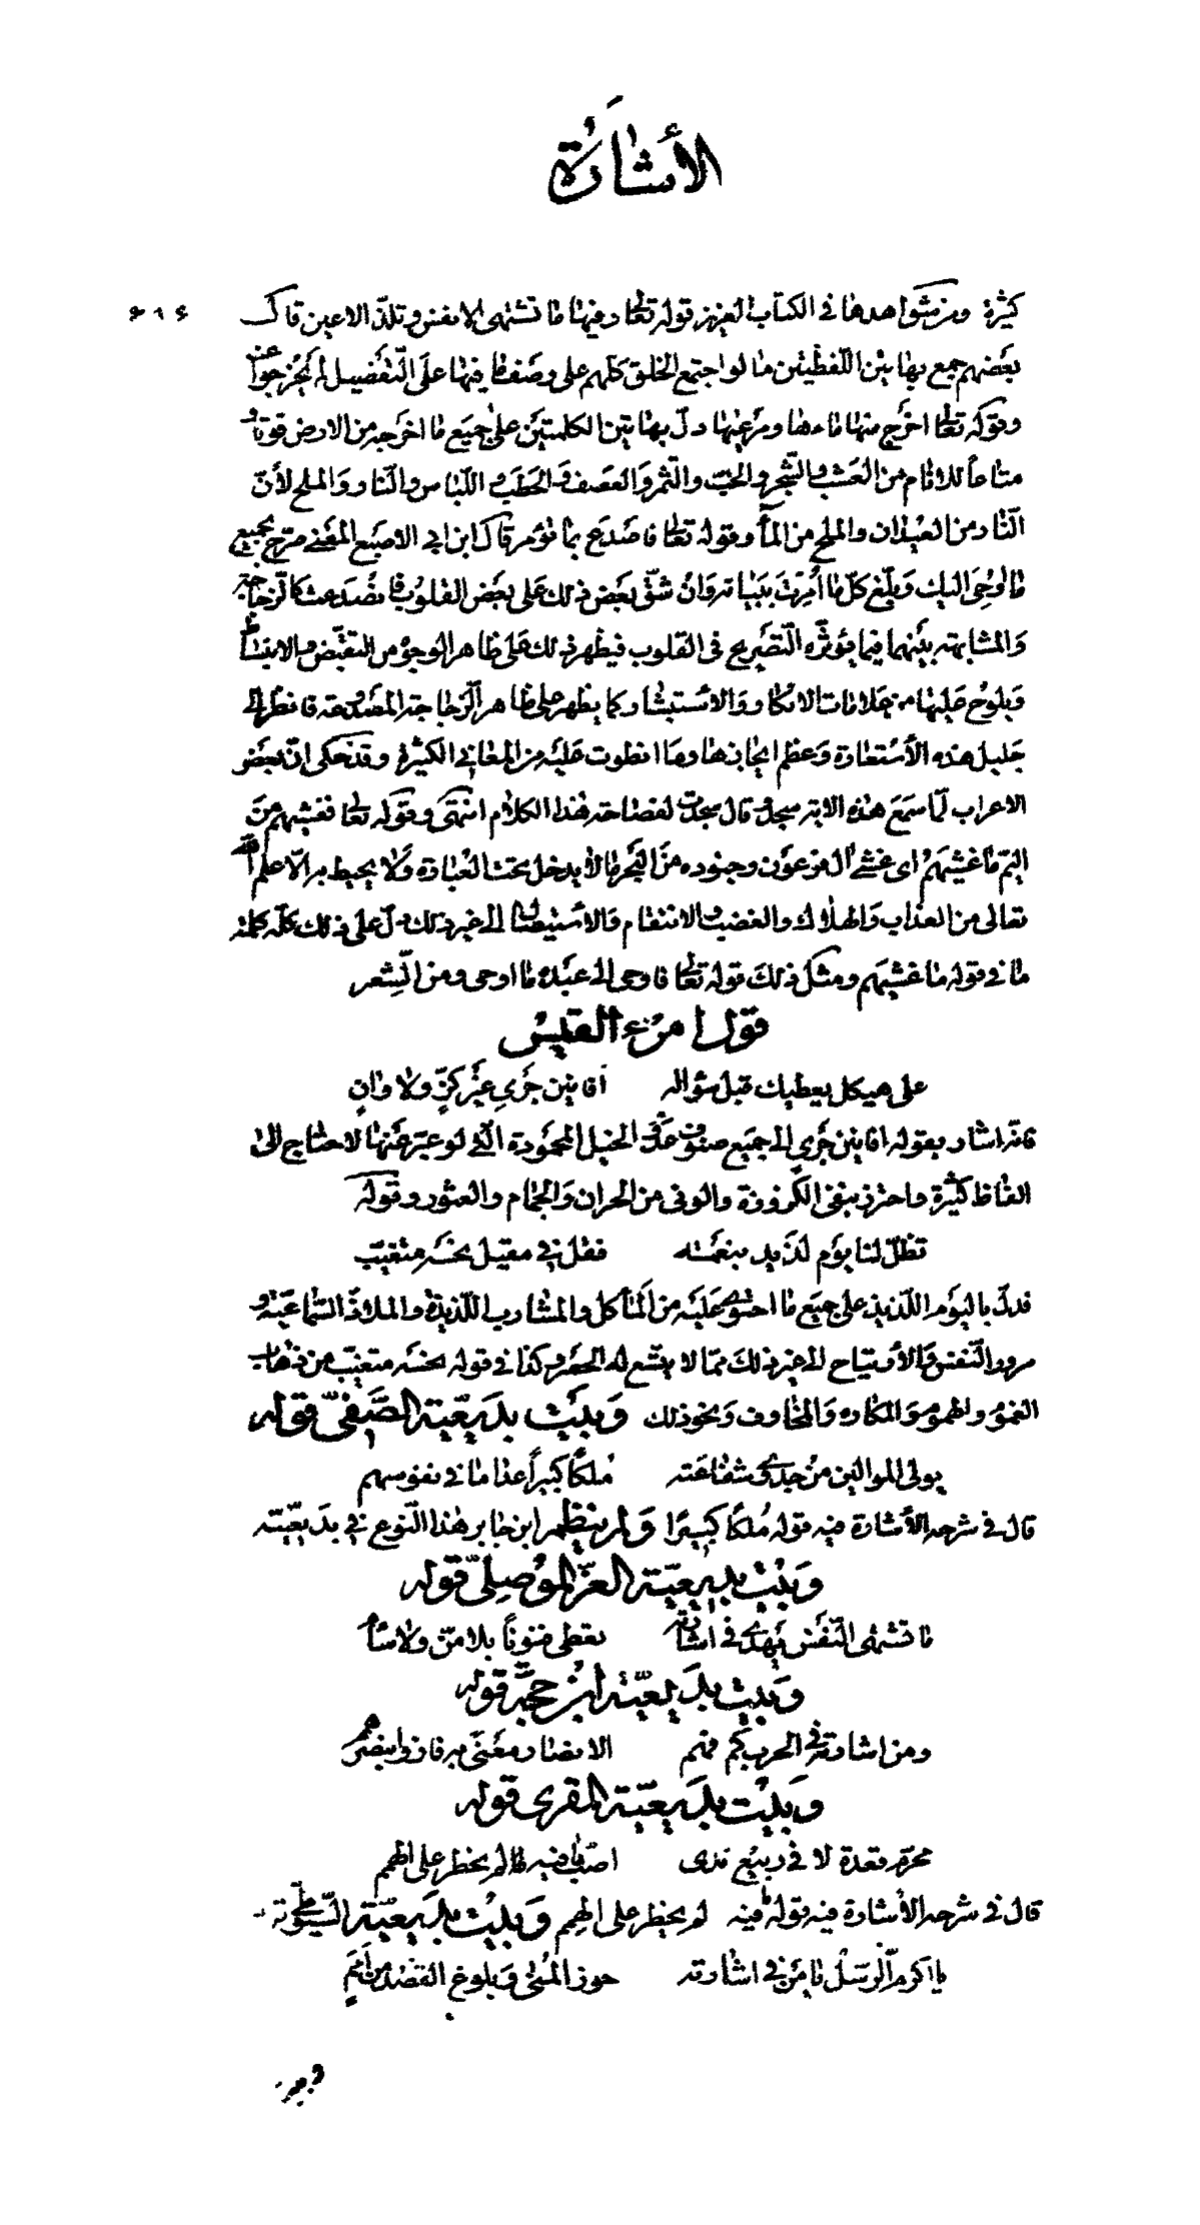 الأشارة
كثيرة ومن شواهدها في الكتاب العزيز قوله تعالى وفيها ما تشتهى الانفس وتلذّ الاعين قال
بعضهم جمع بهاتين اللّفظتين ما لو اجتمع الخلق كلهم على وصف ما فيها على التّفضيل لم يخرجوا عنه
وقوله تعالى اخرج منها ماءها ومرعيها دلّ بهاتين الكلمتين على جميع ما اخرجه من الارض قوتا و
متاعاً للانام من العشب والشّجر والحبّ والثّمر والعصف والحطب واللّباس والنّار والملح لأنّ
النّار من العيدان والملح من الماء وقوله تعالى فاصدع بما تؤمر قال ابن ابي الاصبع المعنى صرّح بجميع
ما اوحى اليك وبلّغ كلّ ما أُمرت ببيانه وان شقّ بعض ذلك على بعض القلوب فانصدعت كالزّجاجة
والمشابهة بينهما فيما يؤثّره التّصريح في القلوب فيظهر ذلك على ظاهر الوجوه من التقبّض والانبساط
ويلوح عليها من علامات الانكار والاستبشار كما يظهر على ظاهر الزّجاجة المصدوعة فانظر الى
جليل هذه الأستعارة وعظم ايجازها وما انطوت عليه من المعاني الكثيرة وقد حكى انّ بعض
الاعراب لمّا سمع هذه الاية سجد وقال سجدت لفصاحة هذا الكلام انتهى وقوله تعالى فغشيهم من
اليمّ ما غشيهم اى غشى آل فرعون وجنوده من البحر ما لا يدخل تحت العبارة ولا يحيط به الّا علم الله
تعالى من العذاب والهلاك والغضب والانتقام والأستيصال الى غير ذلك دلّ على ذلك كلّه كلمة
ما في قوله ما غشيهم ومثل ذلك قوله تعالى فاوحى الى عبده ما اوحى ومن الشّعر
قول امرء القيس
على هيكل يعطيك قبل سؤاله افانين جرى غير كزّ ولا وانٍ
فانّه اشار بقوله افانين جرى الى جميع صنوف عدو الخيل المحمودة الّتى لو عبّر عنها لاحتاج الى
الفاظ كثيرة واحترز بنفى الكزوزة والونى من الحران والجمام والعثور وقوله
تظلّ لنا يوم لذيد بنعمته فقل في مقيل نحسه متغيّب
فدلّ باليوم اللّذيذ على جميع ما احتوى عليه من المآكل والمشارب اللّذيذة والملاذّ السّماعيّة و
سرور النّفس والأرتياح الى غير ذلك ممّا لا يتّسع له الحصر وكذا في قوله نحسه متغيّب من ذهاب
الغموم والهموم والمكاره والمخاوف ونحو ذلك وبيت بديعيّة الصّفىّ قوله
يولى الموالين من جدوى شفاعته مُلكاً كبيراً عدا ما في نفوسهم
قال في شرحه الأشارة فيه قوله مُلكاً كبيرًا ولم ينظم ابن جابر هذا النّوع في بديعيّته
وبيت بديعيّة العزّ الموصلىّ قوله
ما تشتهى النّفس يهدى في اشارته يعطى فنوناً بلا منّ ولا سأم
وبيت بديعيّة ابن حجّة قوله
ومن اشارته في الحرب كم فهم الانصار معنى به فازوا بنصرهم
وبيت بديعيّة المقرى قوله
محرّم قعدة لا في ربيع ندى اصبّ فيه مالم يخطر على الهمم
قال في شرحه الأشارة فيه قوله فيه لم يخطر على الهمم وبيت بديعيّة السّيوطى قوله
يا اكرم الرسل نا من في اشارته حوز المنى وبلوغ القصد من أمم